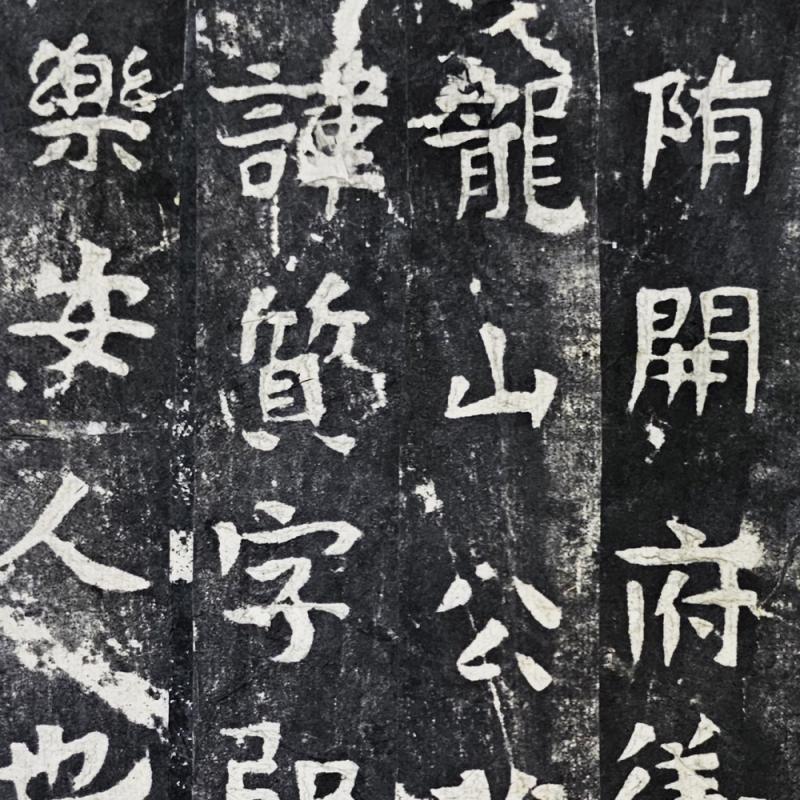 陏開府儀
龍山公
諱質字
樂安人也